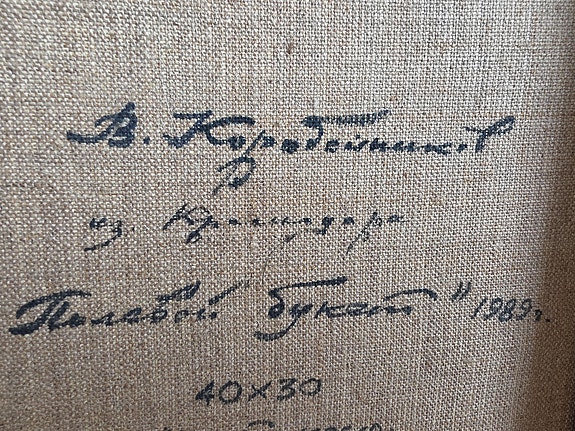 В. Коробейников
из Краснодара
Полевой букет" 1989г.
40х30